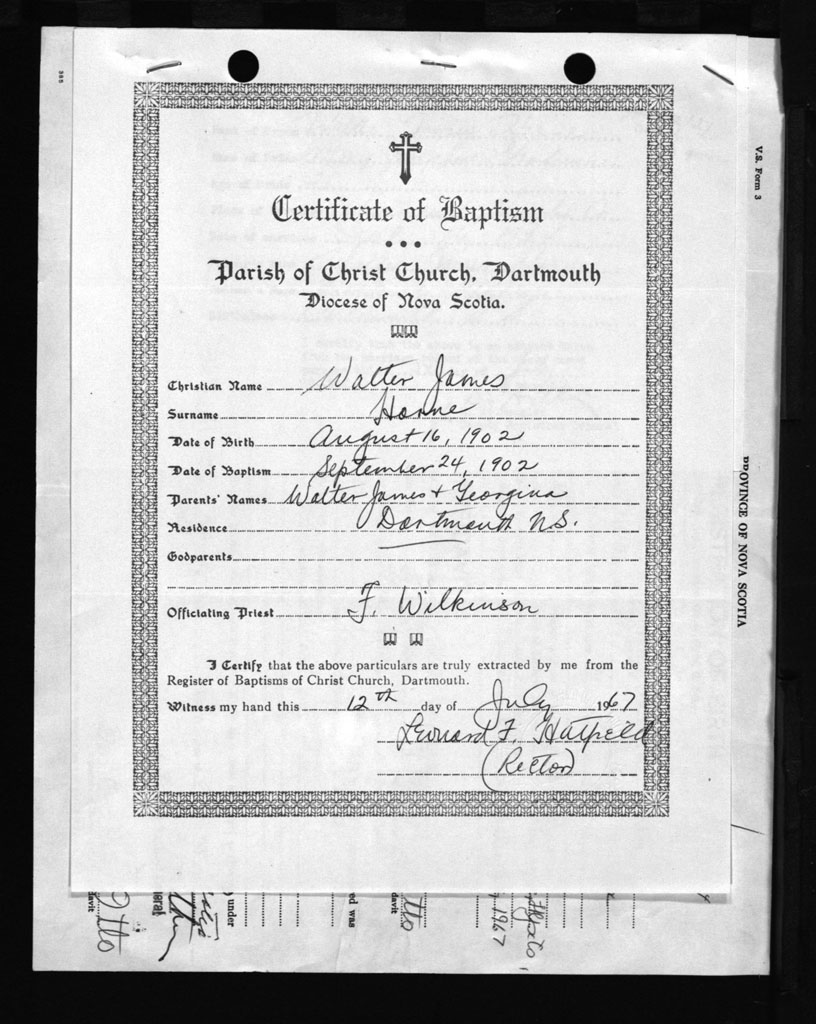 Certificate of Baptism
Parish of Christ Church, Dartmouth
Diocese of Nova Scotia.
Christian Name Walter James
Surname Horne
Date of Birth August 16, 1902
Date of Baptism September 24, 1902
Parents' Names Walter James + Georgina
Residence Dartmouth N.S.
Godparents
Officiating Priest F. Wilkinson
I Certify that the above particulars are truly extracted by me from the
Register of Baptisms of Christ Church, Dartmouth.
Witness my hand this 12th day of July 1967
Leonard F. Hatfield
(Rector)
V.S. Form 3
PROVINCE OF NOVA SCOTIA
davit
) under
ed was
davit
1967